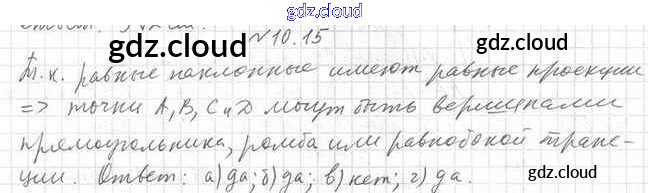 gdz.cloud
№10.15
gdz.cloud gdz.cloud
Т.к. равные наклонные имеют равные проекции
=> точки A, B, C и D могут быть вершинами
прямоугольника, ромба или равнобокой трапе-
ции. Ответ: а) да; б) да; в) нет; г) да.
gdz.cloud gdz.cloud